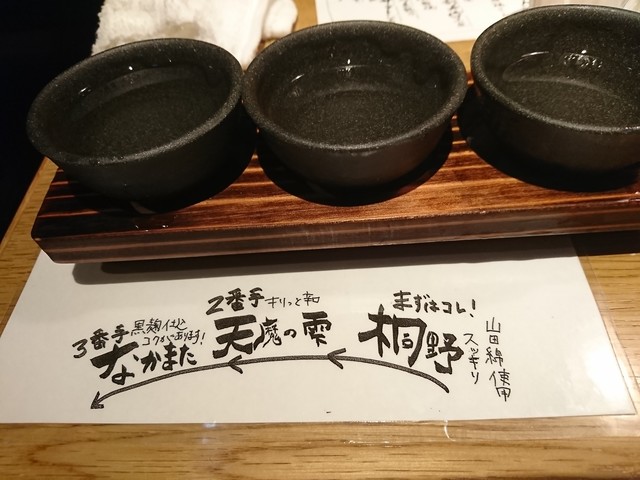 まずはコレ!
桐野
山田綿使用
スッキリ
2番手 キリっと辛口
天魔の雫
3番手 黒麹仕込
コクがあります!
なかまた